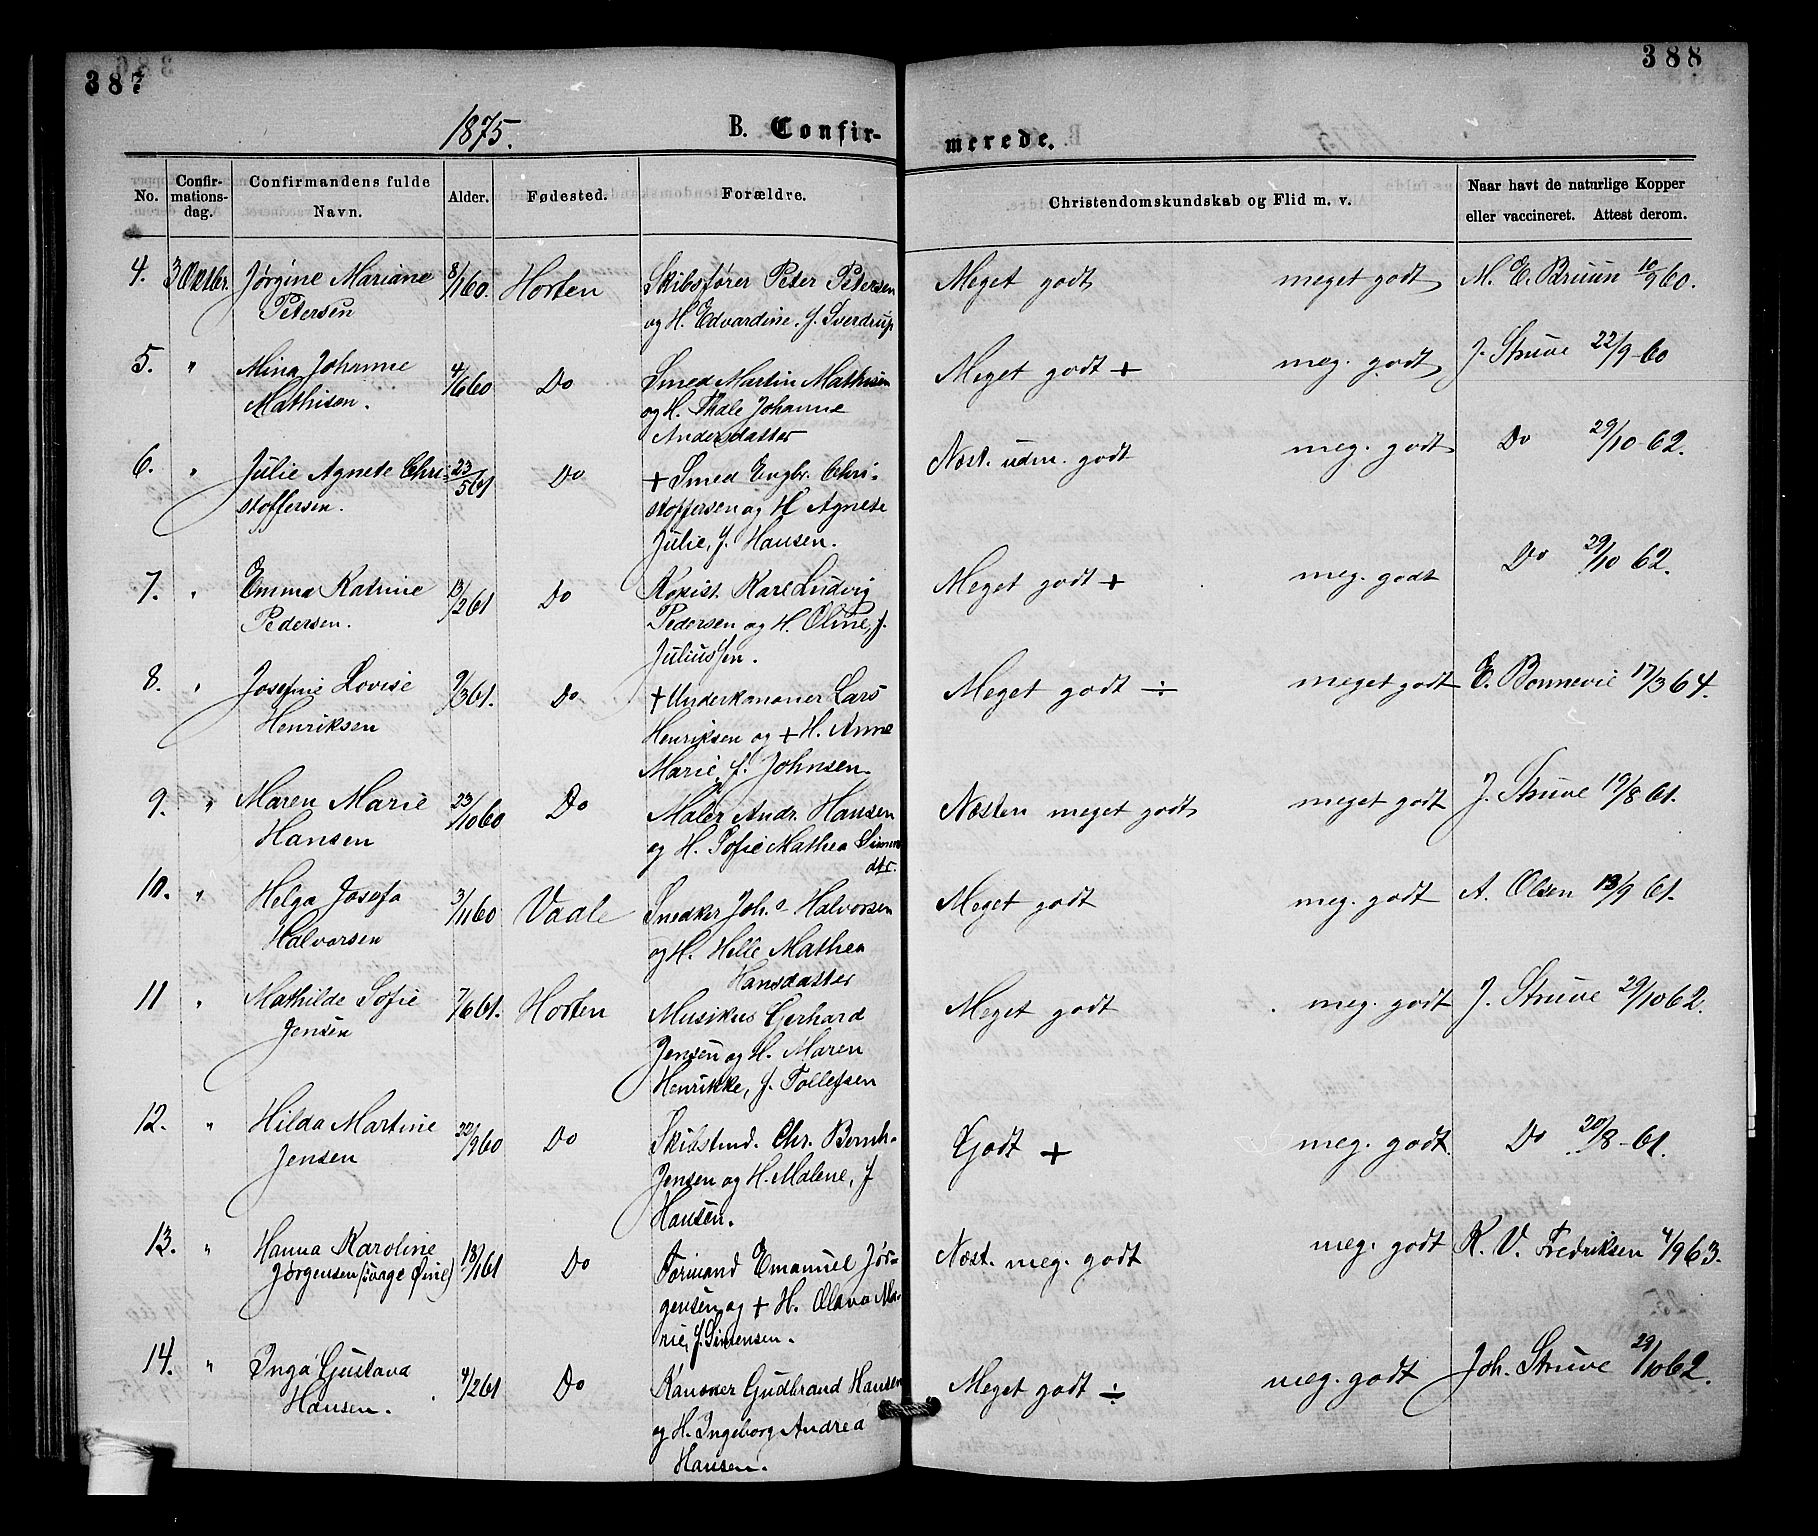 387
388
1875.
B. Confir-
merede.
No.
Confir-
mations-
dag.
Confirmandens fulde
Navn.
Alder.
Fødested.
Forældre.
Christendomskundskab og Flid m. v.
Naar havt de naturlige Kopper
eller vaccineret. Attest derom.
4. 3 Oktbr. Jørgine Mariane 8/1 60. Horten Skibsfører Peter Petersen Meget godt meget godt M. E. Bruun 10/9 60.
Petersen og H. Edvardine, f. Sverdrup
5. " Mina Johanne 4/6 60 Do Smed Martin Mathisen Meget godt + meg. godt J. Struve 22/9-60
Mathisen. og H. Thale Johanne
Andersdatter
6. " Julie Agnete Chri- 23/5 61 Do + Smed Engbr. Chri- Næst. udm. godt meg. godt Do 29/10-62.
stoffersen. stoffersen og H Agnete
Julie, f. Hansen.
7. " Emma Katrine 13/2 61 Do Kopist. Karl Ludvig Meget godt + meg. godt Do 29/10 62.
Pedersen. Pedersen og H. Oline, f.
Juliussen.
8. " Josefine Lovise 9/3 61. Do + Underkanoner Lars Meget godt ÷ meget godt E. Bonnevie 17/3 64.
Henriksen Henriksen og + H. Anne
Marie, f. Johnsen.
9. " Maren Marie 23/10 60 Do Maler Andr. Hansen Næsten meget godt meget godt J. Struve 19/8 61.
Hansen og H. Sofie Mathea
dtr.
10. " Helga Josefa 3/11 60 Vaale Snedker Joh.s Halvorsen Meget godt meg. godt A. Olsen 13/9 61.
Halvorsen og H. Helle Mathea
Hansdatter
11 " Mathilde Sofie 7/6 61. Horten Musikus Gerhard Meget godt meg. godt J. Struve 29/10 62.
Jensen Jensen og H. Maren
Henrikke, f. Tollefsen
12. " Hilda Martine 22/9 60 Do Skibstmd. Chr. Bernh. Godt + meg. godt Do 20/8-61.
Jensen Jensen og H. Malene, f
Hansen.
13. " Hanna Karoline 18/1 61 Do Formand Emanuel Jør- Næst. meg. godt meg. godt K. V. Fredriksen 4/9 63.
Jørgensen (svage Øine) gensen og + H. Olava Ma-
rie, f. Simensen.
14. " Inga Gustava 4/2 61 Do Kanoner Gudbrand Hansen Meget godt ÷ meg. godt Joh. Struve 29/10 62.
Hansen. og H. Ingeborg Andrea
Hansen.